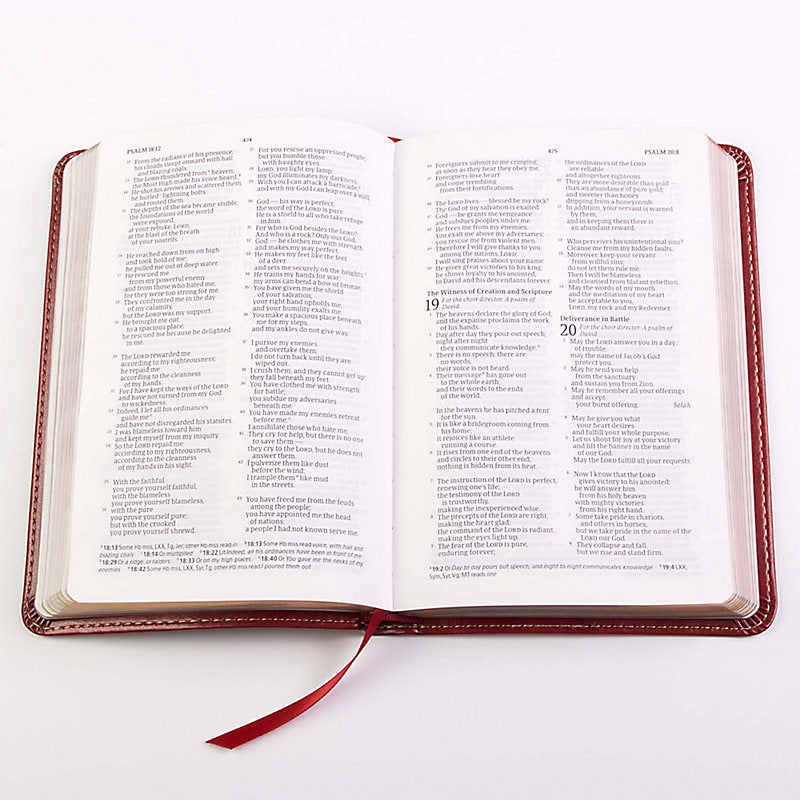 PSALM 18:12
474
12 From the radiance of his presence,
his clouds swept onward with hail
and blazing coals.
13 The LORD thundered from heaven;
the Most High made his voice heard.
14 He shot his arrows and scattered them;
he hurled lightning bolts
and routed them.
15 The depths of the sea became visible,
the foundations of the world
were exposed,
at your rebuke, LORD,
at the blast of the breath
of your nostrils.
16 He reached down from on high
and took hold of me;
he pulled me out of deep water.
17 He rescued me
from my powerful enemy
and from those who hated me,
for they were too strong for me.
18 They confronted me in the day
of my calamity,
but the LORD was my support.
19 He brought me out
to a spacious place;
he rescued me because he delighted
in me.
20 The LORD rewarded me
according to my righteousness;
he repaid me
according to the cleanness
of my hands.
21 For I have kept the ways of the LORD
and have not turned from my God
to wickedness.
22 Indeed, I let all his ordinances
guide me
and have not disregarded his statutes.
23 I was blameless toward him
and kept myself from my iniquity.
24 So the LORD repaid me
according to my righteousness,
according to the cleanness
of my hands in his sight.
25 With the faithful
you prove yourself faithful,
with the blameless
you prove yourself blameless,
26 with the pure
you prove yourself pure;
but with the crooked
you prove yourself shrewd.
27 For you rescue an oppressed people,
but you humble those
with haughty eyes.
28 LORD, you light my lamp;
my God illuminates my darkness.
29 With you I can attack a barricade,
and with my God I can leap over a wall.
30 God — his way is perfect;
the word of the LORD is pure.
He is a shield to all who take refuge
in him.
31 For who is God besides the LORD?
And who is a rock? Only our God.
32 God — he clothes me with strength
and makes my way perfect.
33 He makes my feet like the feet
of a deer
and sets me securely on the heights.
34 He trains my hands for war;
my arms can bend a bow of bronze.
35 You have given me the shield
of your salvation;
your right hand upholds me,
and your humility exalts me.
36 You make a spacious place beneath
me for my steps,
and my ankles do not give way.
37 I pursue my enemies
and overtake them;
I do not turn back until they are
wiped out.
38 I crush them, and they cannot get up;
they fall beneath my feet.
39 You have clothed me with strength
for battle;
you subdue my adversaries
beneath me.
40 You have made my enemies retreat
before me;
I annihilate those who hate me.
41 They cry for help, but there is no one
to save them —
they cry to the LORD, but he does not
answer them.
42 I pulverize them like dust
before the wind;
I trample them like mud
in the streets.
43 You have freed me from the feuds
among the people;
you have appointed me the head
of nations;
a people I had not known serve me.
18:13 Some Hb mss, LXX, Tg, Jer; other Hb mss read in 18:13 Some Hb mss read voice, with hail and
blazing coals 18:14 Or multiplied 18:22 Lit Indeed, all his ordinances have been in front of me
18:29 Or a ridge, or raiders 18:33 Or on my high places 18:40 Or You gave me the necks of my
enemies 18:42 Some Hb mss, LXX, Syr, Tg; other Hb mss read I poured them out
475
PSALM 20:8
44 Foreigners submit to me cringing;
as soon as they hear they obey me.
45 Foreigners lose heart
and come trembling
from their fortifications.
46 The LORD lives — blessed be my rock!
The God of my salvation is exalted.
47 God — he grants me vengeance
and subdues peoples under me.
48 He frees me from my enemies.
You exalt me above my adversaries;
you rescue me from violent men.
49 Therefore I will give thanks to you
among the nations, LORD;
I will sing praises about your name.
50 He gives great victories to his king;
he shows loyalty to his anointed,
to David and his descendants forever.
The Witness of Creation and Scripture
19 For the choir director. A psalm of
David.
1 The heavens declare the glory of God,
and the expanse proclaims the work
of his hands.
2 Day after day they pour out speech;
night after night
they communicate knowledge.
3 There is no speech; there are
no words;
their voice is not heard.
4 Their message has gone out
to the whole earth,
and their words to the ends
of the world.
In the heavens he has pitched a tent
for the sun.
5 It is like a bridegroom coming from
his home;
it rejoices like an athlete
running a course.
6 It rises from one end of the heavens
and circles to their other end;
nothing is hidden from its heat.
7 The instruction of the LORD is perfect,
renewing one's life;
the testimony of the LORD
is trustworthy,
making the inexperienced wise.
8 The precepts of the LORD are right,
making the heart glad;
the command of the LORD is radiant,
making the eyes light up.
9 The fear of the LORD is pure,
enduring forever;
the ordinances of the LORD
are reliable
and altogether righteous.
10 They are more desirable than gold —
than an abundance of pure gold;
and sweeter than honey
dripping from a honeycomb.
11 In addition, your servant is warned
by them,
and in keeping them there is
an abundant reward.
12 Who perceives his unintentional sins?
Cleanse me from my hidden faults.
13 Moreover, keep your servant
from willful sins;
do not let them rule me.
Then I will be blameless
and cleansed from blatant rebellion.
14 May the words of my mouth
and the meditation of my heart
be acceptable to you,
LORD, my rock and my Redeemer.
Deliverance in Battle
20 For the choir director. A psalm of
David.
1 May the LORD answer you in a day
of trouble;
may the name of Jacob's God
protect you.
2 May he send you help
from the sanctuary
and sustain you from Zion.
3 May he remember all your offerings
and accept
your burnt offering. Selah
4 May he give you what
your heart desires
and fulfill your whole purpose.
5 Let us shout for joy at your victory
and lift the banner in the name
of our God.
May the LORD fulfill all your requests.
6 Now I know that the LORD
gives victory to his anointed;
he will answer him
from his holy heaven
with mighty victories
from his right hand.
7 Some take pride in chariots,
and others in horses,
but we take pride in the name of
the LORD our God.
8 They collapse and fall,
but we rise and stand firm.
19:2 Or Day to day pours out speech, and night to night communicates knowledge 19:4 LXX,
Sym, Syr, Vg; MT reads line